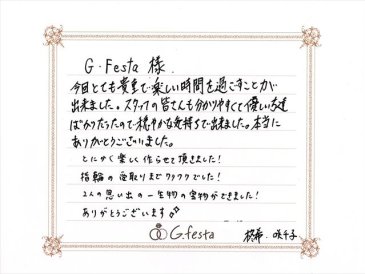 G.Festa 様
今回とても貴重で楽しい時間を過ごすことが
出来ました。スタッフの皆さんも分かりやすくて優しい方達
ばかりだったので穏やかな気持ちで出来ました。本当に
ありがとうございました。
とにかく楽しく作らせて頂きました!
指輪の受取りまでワクワクでした!
2人の思い出の一生物の宝物ができました!
ありがとうございます
G.festa